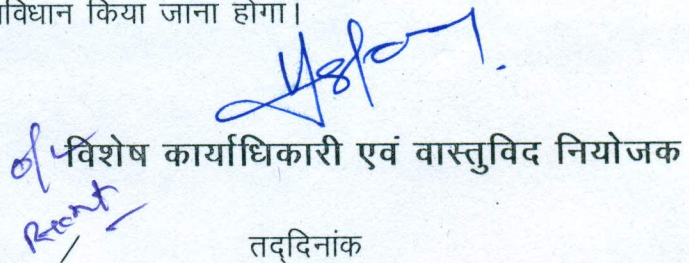 विधान किया जाना होगा।
विशेष कार्याधिकारी एवं वास्तुविद नियोजक
तद्दिनांक